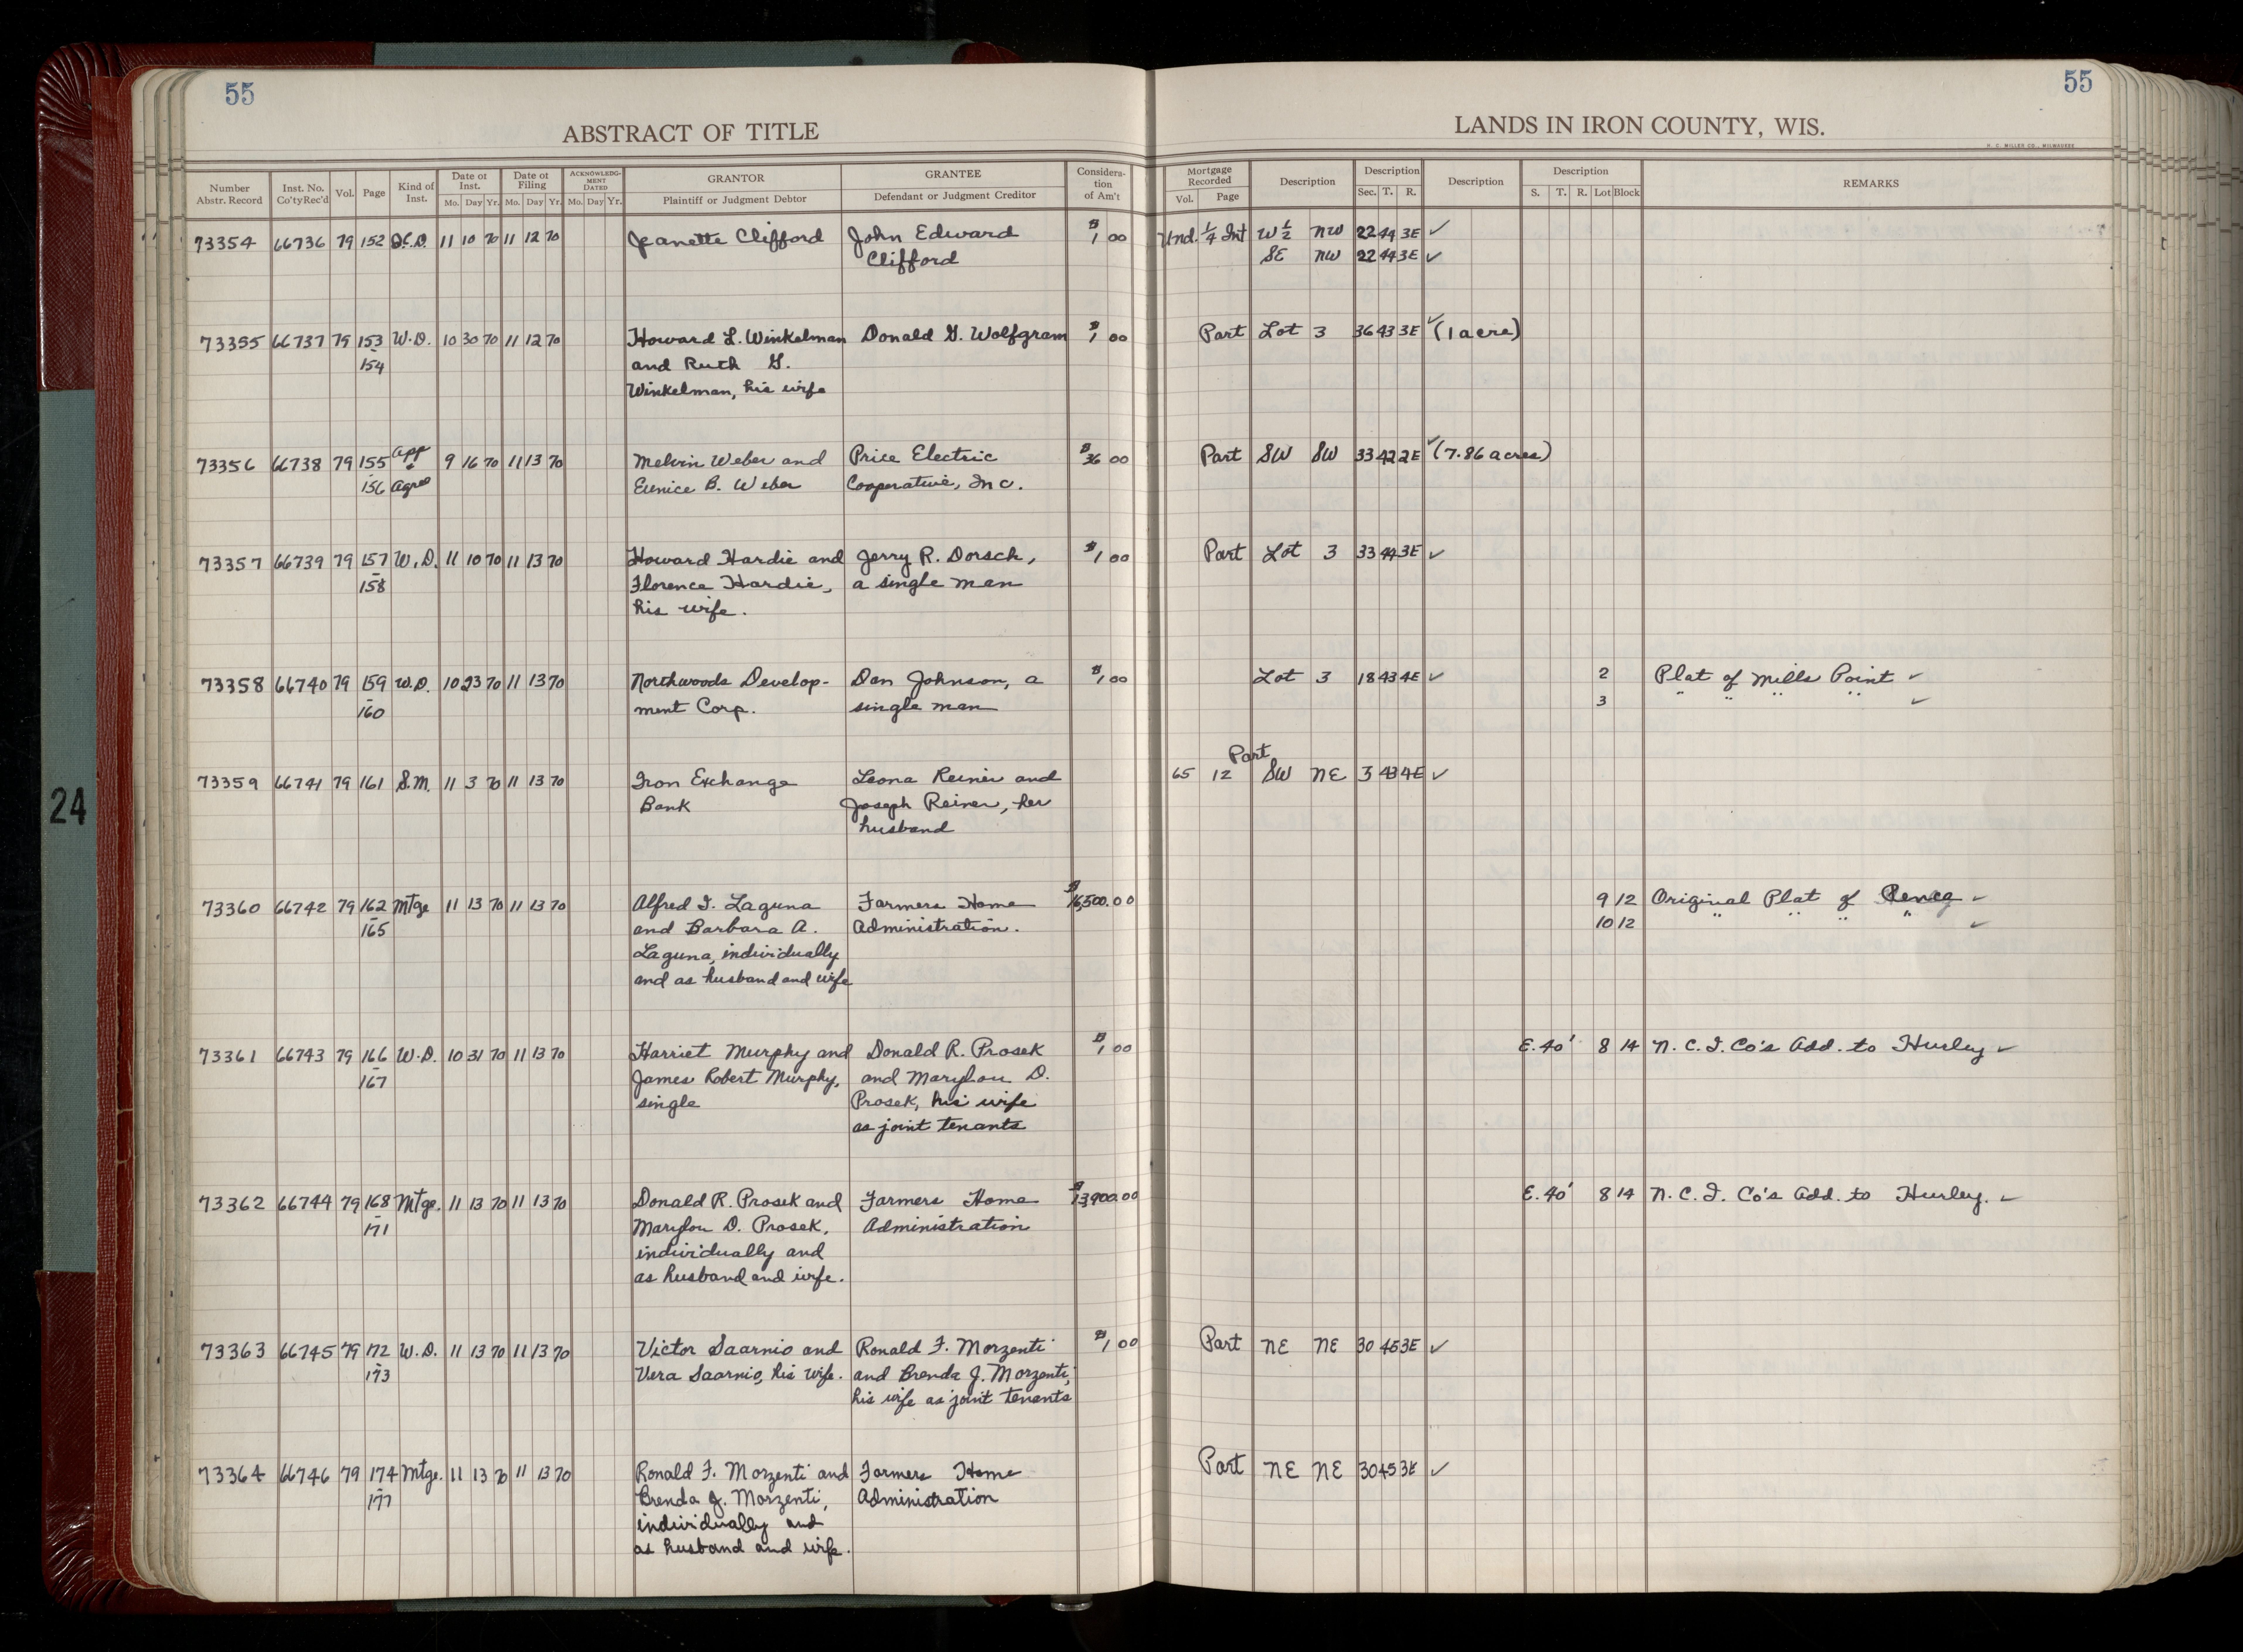 55
55
ABSTRACT OF TITLE
LANDS IN IRON COUNTY, WIS.
H. C. MILLER CO., MILWAUKEE
Number Abstr. Record Inst. No. Co'ty Rec'd Vol. Page Kind of Inst. Date of Inst. Mo. Day Yr. Date of Filing Mo. Day Yr. ACKNOWLEDGMENT DATED Mo. Day Yr. GRANTOR Plaintiff or Judgment Debtor GRANTEE Defendant or Judgment Creditor Consideration of Am't Mortgage Recorded Vol. Page Description Description Sec. T. R. Description Description S. T. R. Lot Block REMARKS
73354 66736 79 152 Q.C.D. 11 10 70 11 12 70 Jeanette Clifford John Edward $1 00 Und. 1/4 Int W 1/2 NW 22 44 3E ✓
Clifford SE NW 22 44 3E ✓
73355 66737 79 153 W.D. 10 30 70 11 12 70 Howard L. Winkelman Donald G. Wolfgram $1 00 Part Lot 3 36 43 3E ✓ (1 acre)
- 154 and Ruth G.
Winkelman, his wife
73356 66738 79 155 App & 9 16 70 11 13 70 Melvin Weber and Price Electric $36 00 Part SW SW 33 42 2E ✓ (7.86 acres)
156 Agree Eunice B. Weber Cooperative, Inc.
73357 66739 79 157 W.D. 11 10 70 11 13 70 Howard Hardie and Jerry R. Dorsch, $1 00 Part Lot 3 33 44 3E ✓
- 158 Florence Hardie, a single man
his wife.
73358 66740 79 159 W.D. 10 23 70 11 13 70 Northwoods Develop- Dan Johnson, a $1 00 Lot 3 18 43 4E ✓ 2 Plat of Mills Point ✓
- 160 ment Corp. single man 3 " " " " ✓
73359 66741 79 161 S.M. 11 3 70 11 13 70 Iron Exchange Leona Reiner and 65 12 Part SW NE 3 43 4E ✓
Bank Joseph Reiner, her
husband
73360 66742 79 162 Mtge 11 13 70 11 13 70 Alfred I. Laguna Farmers Home $16,500.00 9 12 Original Plat of Pence ✓
- 165 and Barbara A. Administration. 10 12 " " " " ✓
Laguna, individually
and as husband and wife
73361 66743 79 166 W.D. 10 31 70 11 13 70 Harriet Murphy and Donald R. Prosek $1 00 E. 40' 8 14 N. C. I. Co's Add. to Hurley ✓
- 167 James Robert Murphy, and Marylou D.
single Prosek, his wife
as joint tenants
73362 66744 79 168 Mtge. 11 13 70 11 13 70 Donald R. Prosek and Farmers Home $13,900.00 E. 40' 8 14 N. C. I. Co's Add. to Hurley. ✓
- 171 Marylou D. Prosek, Administration
individually and
as husband and wife.
73363 66745 79 172 W.D. 11 13 70 11 13 70 Victor Saarnio and Ronald F. Morzenti $1 00 Part NE NE 30 45 3E ✓
- 173 Vera Saarnio, his wife. and Brenda J. Morzenti,
his wife as joint tenants
73364 66746 79 174 Mtge. 11 13 70 11 13 70 Ronald F. Morzenti and Farmers Home Part NE NE 30 45 3E ✓
- 177 Brenda J. Morzenti, Administration
individually and
as husband and wife.
24